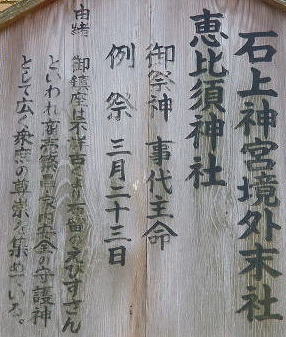 石上神宮境外末社
恵比須神社
御祭神 事代主命
例祭 三月二十三日
由緒 御鎮座は不詳古くより布留のえびすさん
といわれ商売繁昌家内安全の守護神
として広く衆庶の尊崇を集めている。